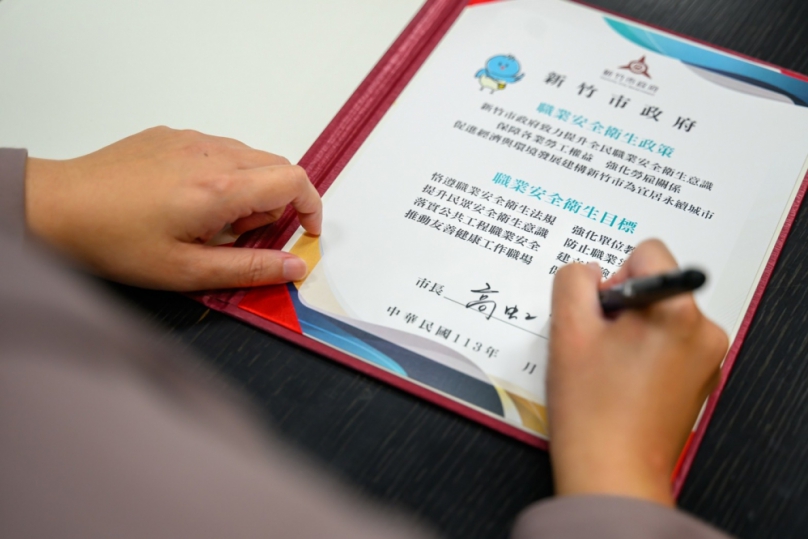 新竹市政府
新竹市政府
職業安全衛生政策
新竹市政府致力提升全民職業安全衛生意識
保障各業勞工權益 強化勞雇關係
促進經濟與環境發展建構新竹市為宜居永續城市
職業安全衛生目標
恪遵職業安全衛生法規 強化單位
提升民眾安全衛生意識 防止職業
落實公共工程職業安全 建立
推動友善健康工作職場
市長 高虹
中華民國113年 月